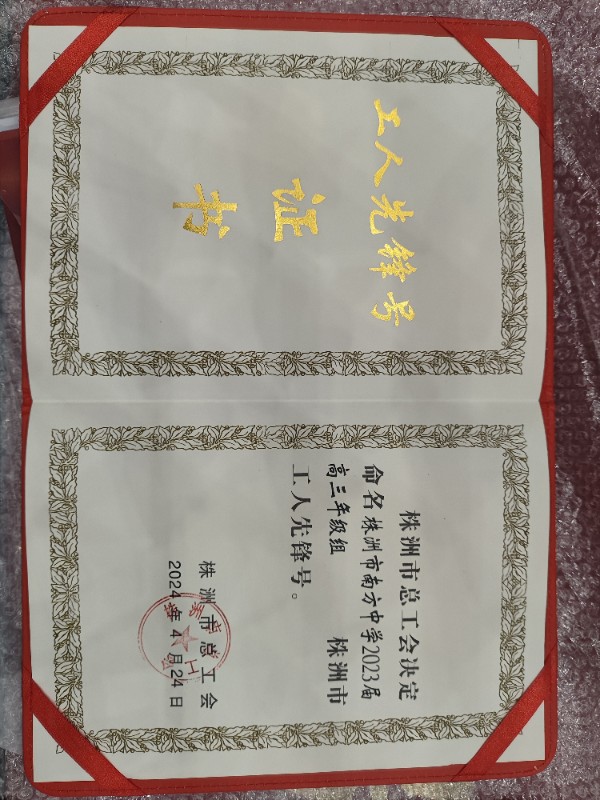 工人先锋号
证
书
株洲市总工会决定
命名株洲市南方中学2023届
高三年级组 株洲市
工人先锋号。
株洲市总工会
2024年4月24日